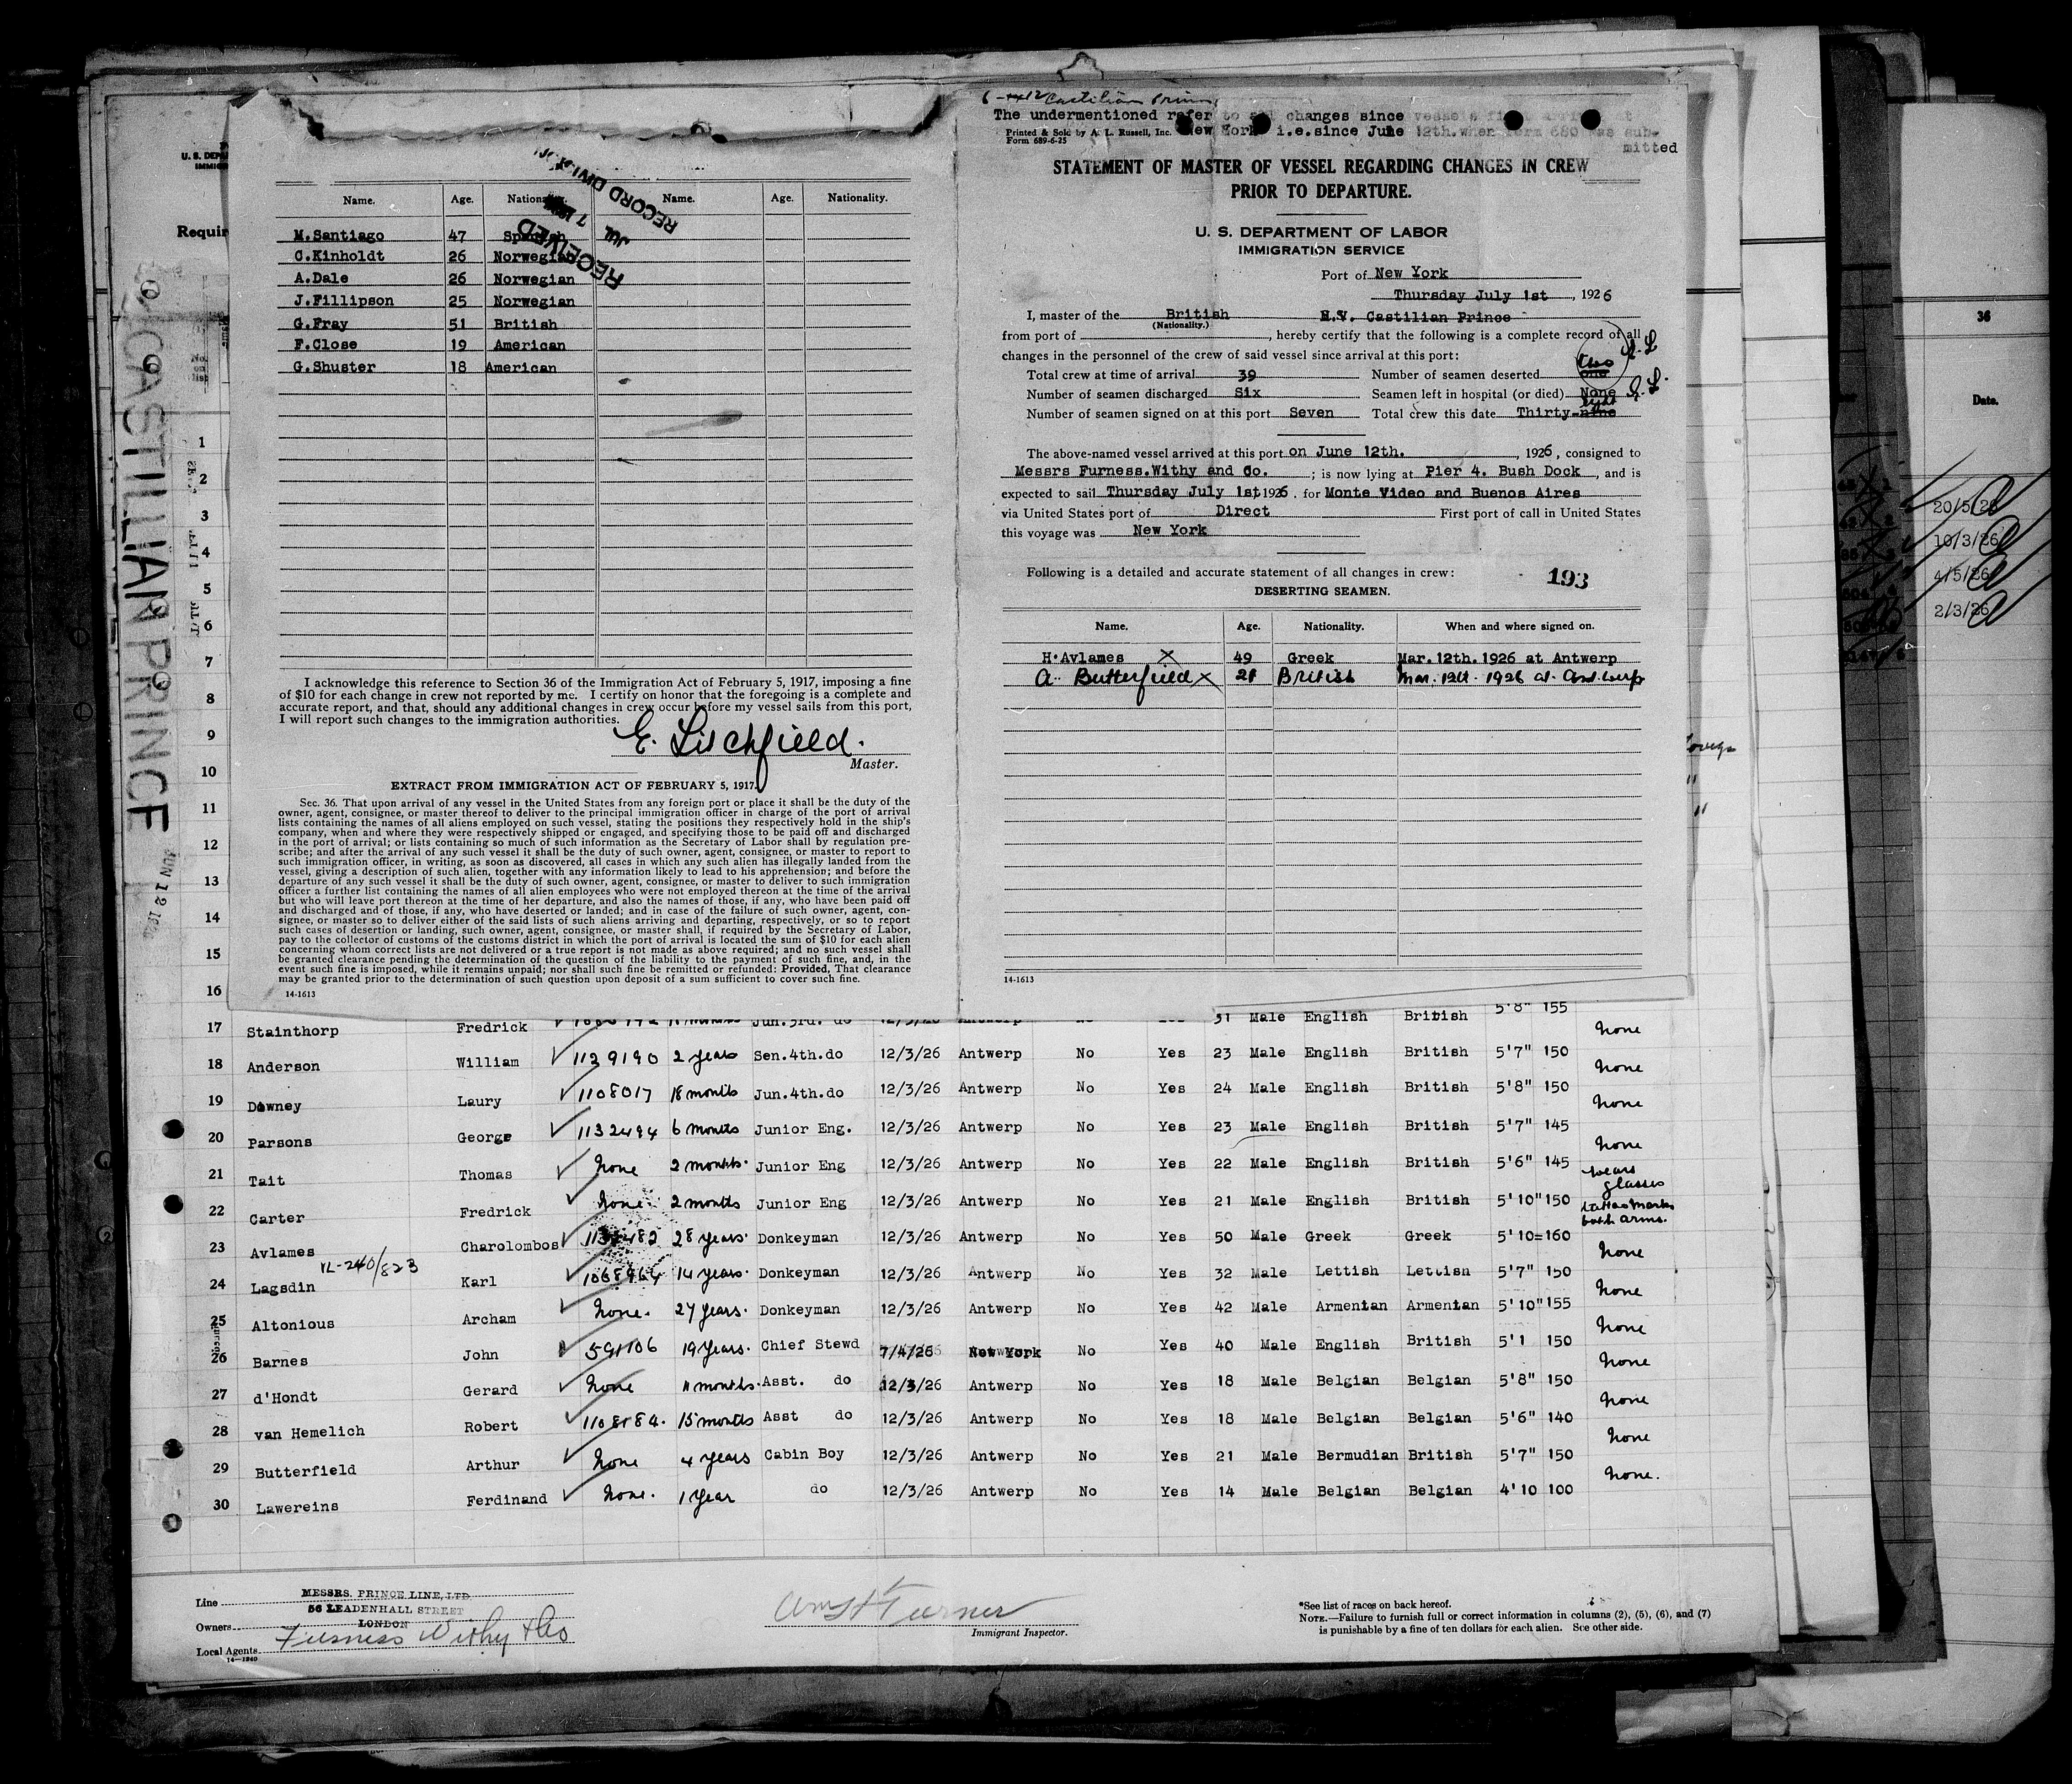 U. S. DEP
IMMIG
Requir
CASTILLIAN PRINCE
JUN 12
Name. Age. Nationality. Name. Age. Nationality.
RECEIVED
JUL 7
RECORD DIVI
M.Santiago 47 Spanish
C.Kinholdt 26 Norwegian
A.Dale 26 Norwegian
J.Fillipson 25 Norwegian
G.Fray 51 British
F.Close 19 American
G.Shuster 18 American
I acknowledge this reference to Section 36 of the Immigration Act of February 5, 1917, imposing a fine
of $10 for each change in crew not reported by me. I certify on honor that the foregoing is a complete and
accurate report, and that, should any additional changes in crew occur before my vessel sails from this port,
I will report such changes to the immigration authorities.
E. Litchfield.
Master.
EXTRACT FROM IMMIGRATION ACT OF FEBRUARY 5, 1917.
Sec. 36. That upon arrival of any vessel in the United States from any foreign port or place it shall be the duty of the
owner, agent, consignee, or master thereof to deliver to the principal immigration officer in charge of the port of arrival
lists containing the names of all aliens employed on such vessel, stating the positions they respectively hold in the ship's
company, when and where they were respectively shipped or engaged, and specifying those to be paid off and discharged
in the port of arrival; or lists containing so much of such information as the Secretary of Labor shall by regulation pre-
scribe; and after the arrival of any such vessel it shall be the duty of such owner, agent, consignee, or master to report to
such immigration officer, in writing, as soon as discovered, all cases in which any such alien has illegally landed from the
vessel, giving a description of such alien, together with any information likely to lead to his apprehension; and before the
departure of any such vessel it shall be the duty of such owner, agent, consignee, or master to deliver to such immigration
officer a further list containing the names of all alien employees who were not employed thereon at the time of the arrival
but who will leave port thereon at the time of her departure, and also the names of those, if any, who have been paid off
and discharged and of those, if any, who have deserted or landed; and in case of the failure of such owner, agent, con-
signee, or master so to deliver either of the said lists of such aliens arriving and departing, respectively, or so to report
such cases of desertion or landing, such owner, agent, consignee, or master shall, if required by the Secretary of Labor,
pay to the collector of customs of the customs district in which the port of arrival is located the sum of $10 for each alien
concerning whom correct lists are not delivered or a true report is not made as above required; and no such vessel shall
be granted clearance pending the determination of the question of the liability to the payment of such fine, and, in the
event such fine is imposed, while it remains unpaid; nor shall such fine be remitted or refunded: Provided, That clearance
may be granted prior to the determination of such question upon deposit of a sum sufficient to cover such fine.
14-1613
Castilian Prince
The undermentioned refer to changes since vessel's first arrival at
Printed & Sold by A. L. Russell, Inc. New York i.e.since June 12th.when form 680 was sub-
Form 689-6-25
mitted
STATEMENT OF MASTER OF VESSEL REGARDING CHANGES IN CREW
PRIOR TO DEPARTURE.
U. S. DEPARTMENT OF LABOR
IMMIGRATION SERVICE
Port of New York
Thursday July 1st, 1926
I, master of the British M.V. Castilian Prince
(Nationality.)
from port of , hereby certify that the following is a complete record of all
changes in the personnel of the crew of said vessel since arrival at this port:
Total crew at time of arrival 39 Number of seamen deserted one two E.L
Number of seamen discharged Six Seamen left in hospital (or died) None E.L.
Number of seamen signed on at this port Seven Total crew this date Thirty-nine eight
The above-named vessel arrived at this port on June 12th. , 1926, consigned to
Messrs Furness.Withy and Co. ; is now lying at Pier 4. Bush Dock , and is
expected to sail Thursday July 1st, 1926. for Monte Video and Buenos Aires
via United States port of Direct First port of call in United States
this voyage was New York
Following is a detailed and accurate statement of all changes in crew: 193
DESERTING SEAMEN.
Name. Age. Nationality. When and where signed on.
H.Avlames X 49 Greek Mar.12th.1926 at Antwerp
A. Butterfield X 21 British Mar. 12th. 1926 at Antwerp
14-1613
1
2
3
4
5
6
7
8
9
10
11
12
13
14
15
16
17 Stainthorp Fredrick Jun.3rd. do 12/3/26 Antwerp No Yes 31 Male English British 5'8" 155 None
18 Anderson William 1129190 2 years Sen.4th.do 12/3/26 Antwerp No Yes 23 Male English British 5'7" 150 None
19 Downey Laury 1108017 18 months Jun.4th.do 12/3/26 Antwerp No Yes 24 Male English British 5'8" 150 None
20 Parsons George 1132494 6 months Junior Eng. 12/3/26 Antwerp No Yes 23 Male English British 5'7" 145 None
21 Tait Thomas None 2 months. Junior Eng 12/3/26 Antwerp No Yes 22 Male English British 5'6" 145 wears glasses
22 Carter Fredrick None. 2 months Junior Eng 12/3/26 Antwerp No Yes 21 Male English British 5'10" 150 tattoo marks both arms.
23 Avlames Charolombos 28 years. Donkeyman 12/3/26 Antwerp No Yes 50 Male Greek Greek 5'10= 160 None
24 Lagsdin VL-240/823 Karl 1068964 14 years. Donkeyman 12/3/26 Antwerp No Yes 32 Male Lettish Lettish 5'7" 150 None
25 Altonious Archam None. 27 years. Donkeyman 12/3/26 Antwerp No Yes 42 Male Armentan Armentan 5'10" 155 None
26 Barnes John 591106 19 Years. Chief Stewd 7/4/26 New York No Yes 40 Male English British 5'1 150 None
27 d'Hondt Gerard None 11 months. Asst. do 12/3/26 Antwerp No Yes 18 Male Belgian Belgian 5'8" 150 None
28 van Hemelich Robert 1108184. 15 months Asst do 12/3/26 Antwerp No Yes 18 Male Belgian Belgian 5'6" 140 None
29 Butterfield Arthur None 4 years Cabin Boy 12/3/26 Antwerp No Yes 21 Male Bermudian British 5'7" 150 None.
30 Lawereins Ferdinand None. 1 Year do 12/3/26 Antwerp No Yes 14 Male Belgian Belgian 4'10 100
Line MESSRS. PRINCE LINE, LTD
56 LEADENHALL STREET
Owners LONDON
Local Agents Furness Withy & Co
14-1240
Turner
Immigrant Inspector.
*See list of races on back hereof.
NOTE.—Failure to furnish full or correct information in columns (2), (5), (6), and (7)
is punishable by a fine of ten dollars for each alien. See other side.
36
Date.
20/5/26
10/3/26
4/5/26
2/3/26